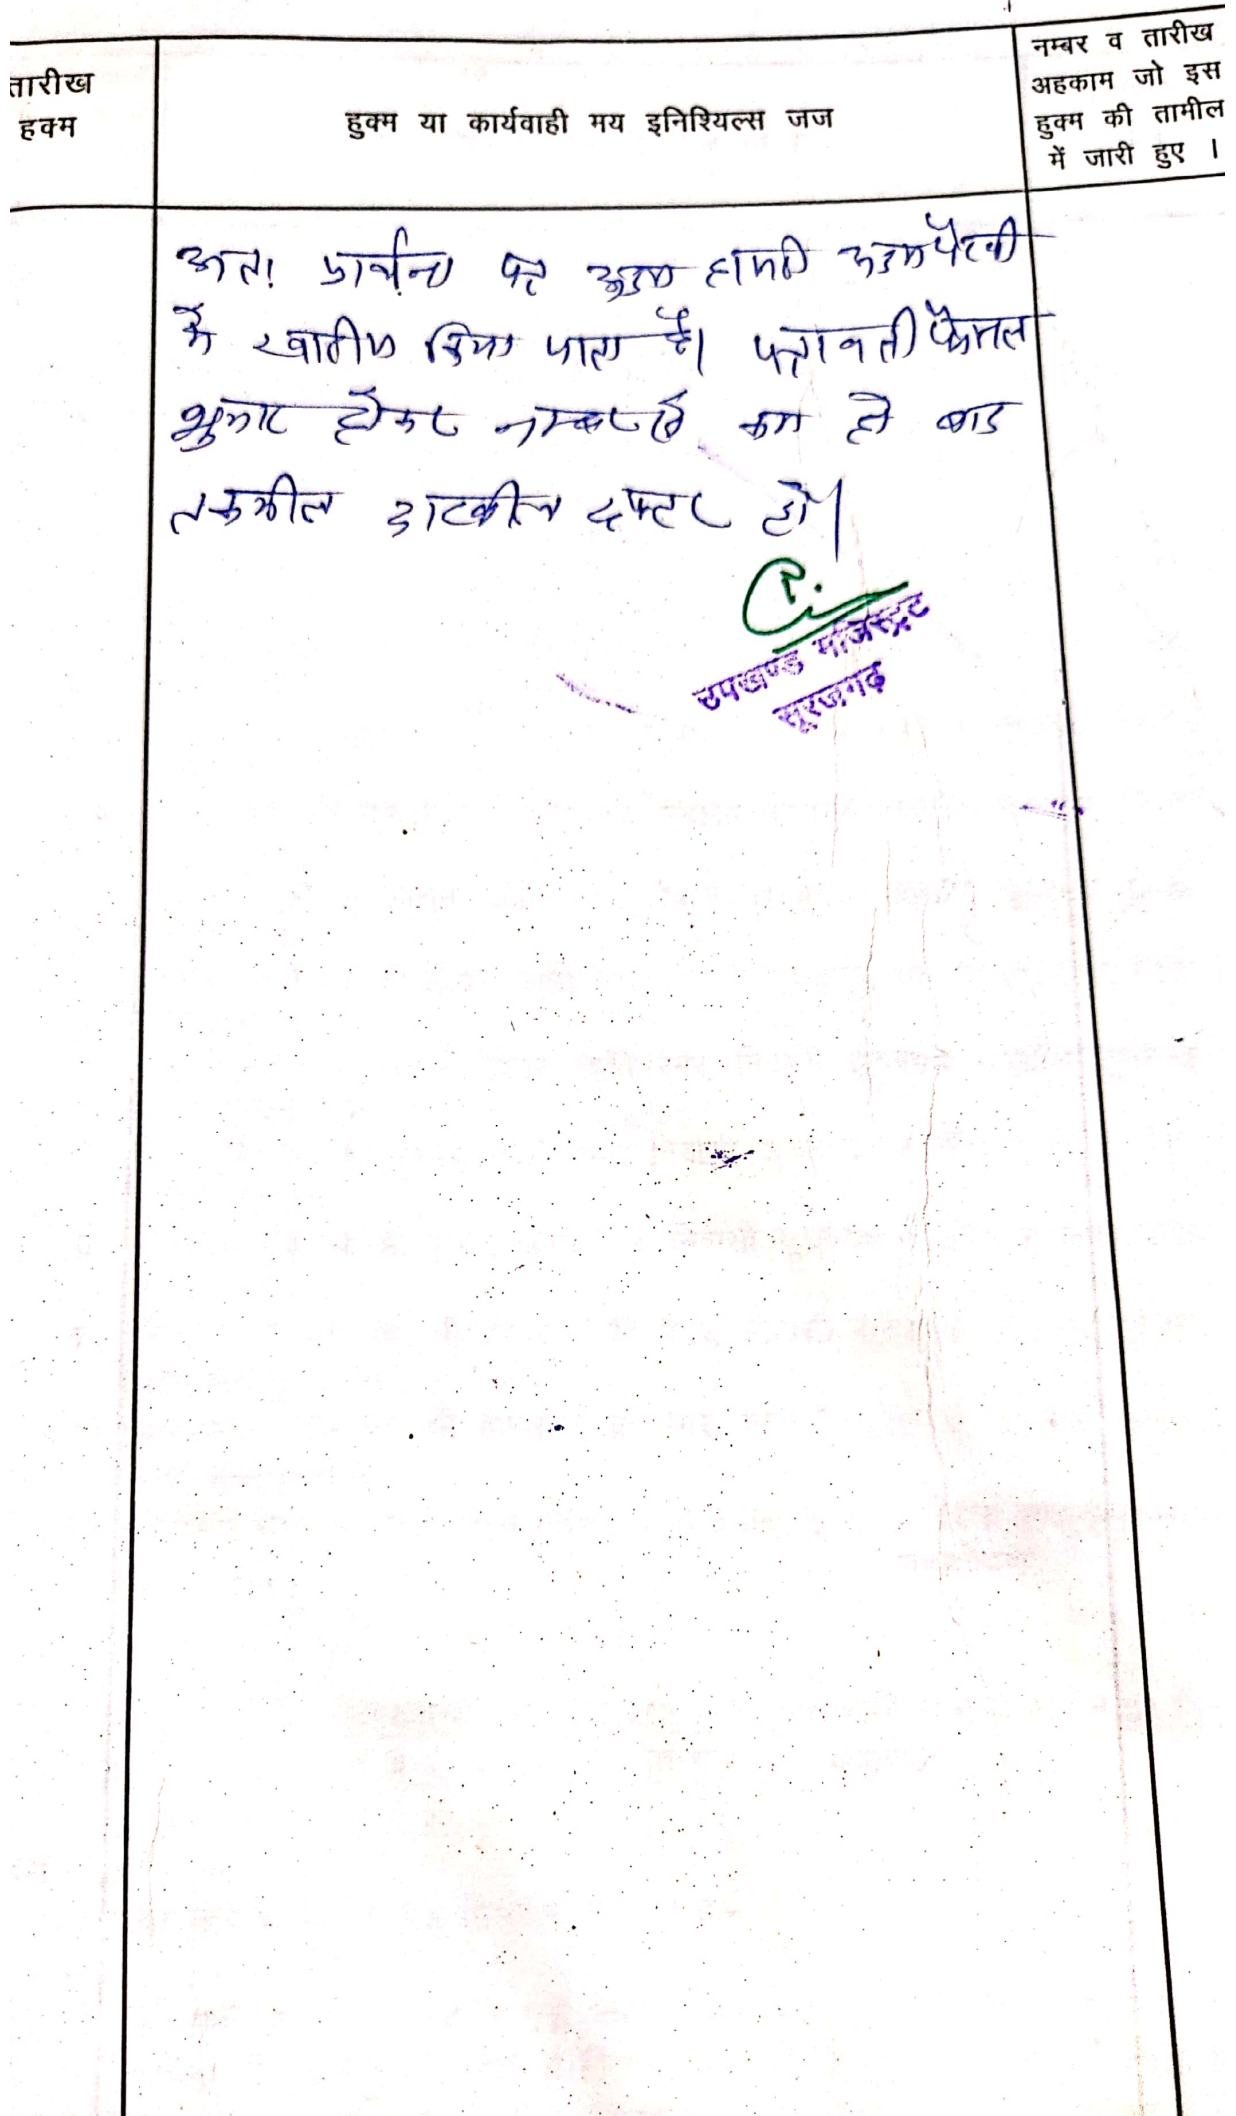 तारीख
हुक्म
हुक्म या कार्यवाही मय इनिशियल्स जज
नम्बर व तारीख
अहकाम जो इस
हुक्म की तामील
में जारी हुए ।
अतः प्रार्थना पत्र अदम हाजरी अदमपैरवी
में खारीज किया जाता है। पत्रावली फैसल
शुमार होकर नम्बर से कम हो बाद
तकमील दाखील दफ्तर हो।
उपखण्ड मजिस्ट्रेट
सूरजगढ़